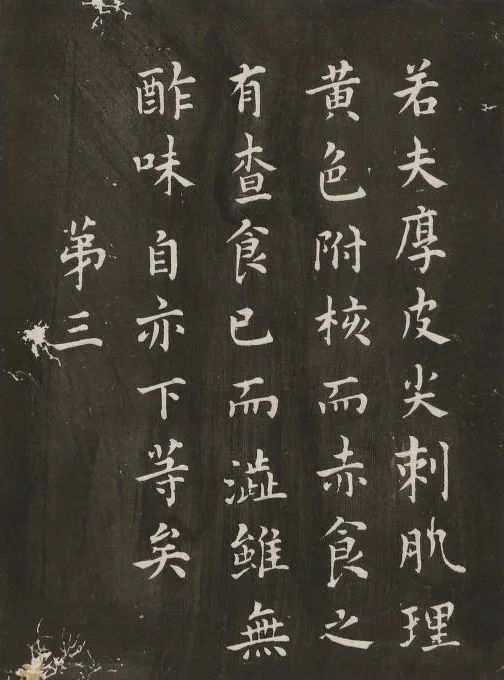 若夫厚皮尖刺肌理
黄色附核而赤食之
有查食已而澁雖無
酢味自亦下等矣
第三